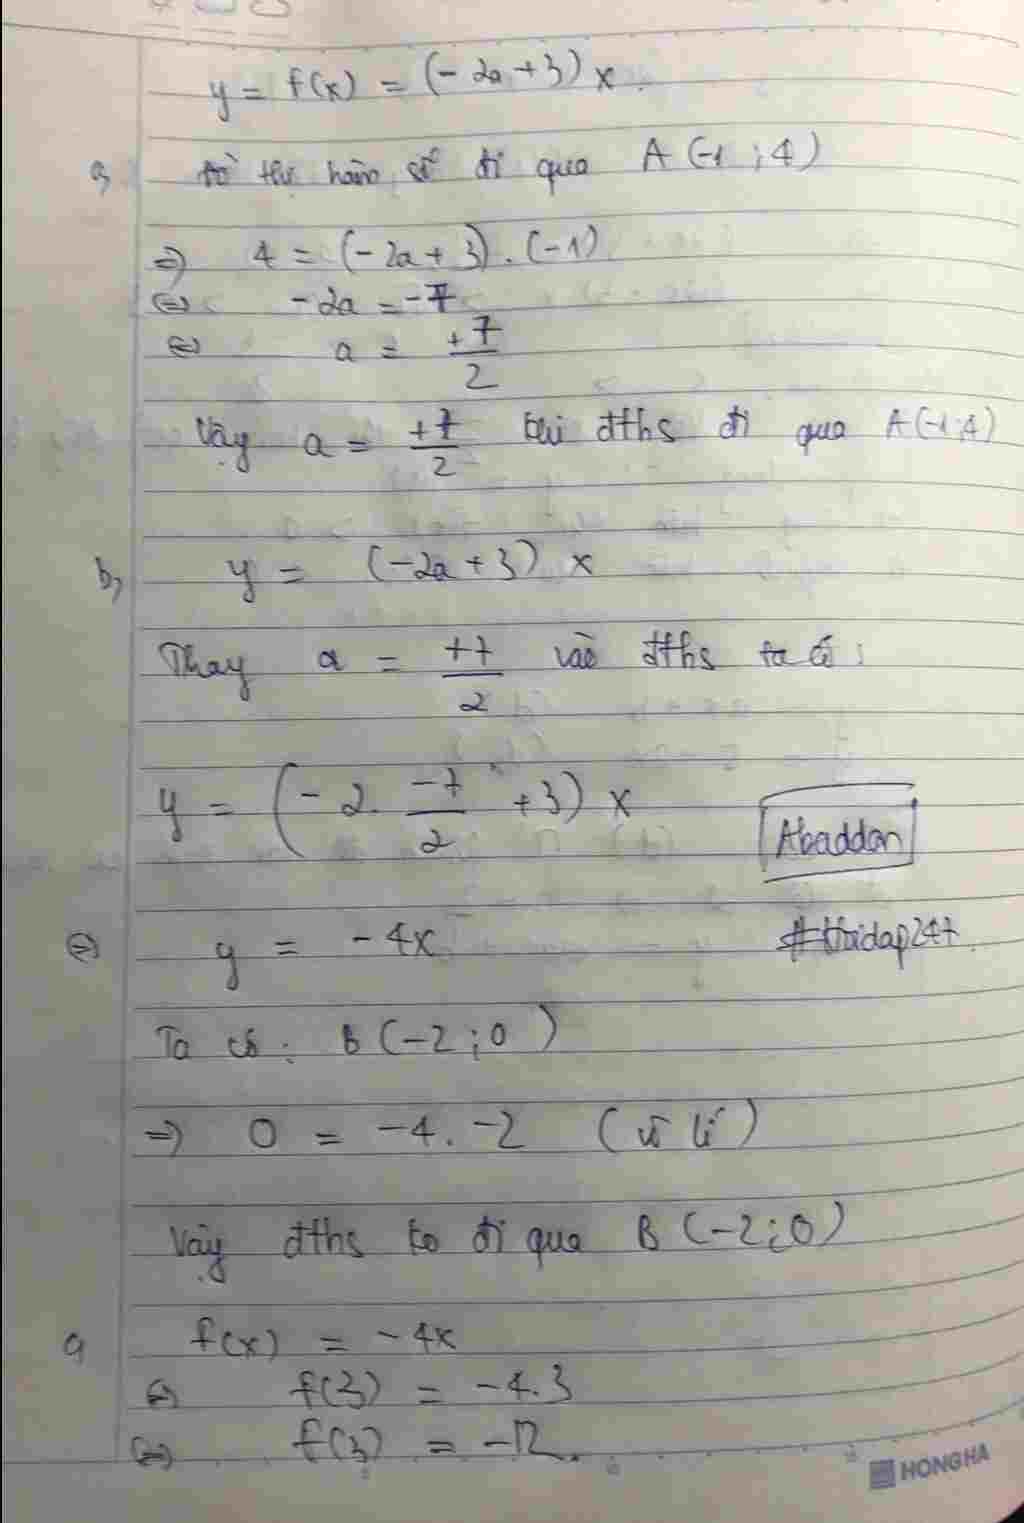 y = f(x) = (-2a+3)x.
a, đồ thị hàm số đi qua A(-1;4)
=> 4 = (-2a+3).(-1)
<=> -2a = -7
<=> a = +7/2
Vậy a = +7/2 thì đths đi qua A(-1;4)
b, y = (-2a+3)x
Thay a = +7/2 vào đths ta có:
y = (-2. -7/2 +3)x
Abaddon
<=> y = -4x
#Hoidap247.
Ta có: B(-2;0)
=> 0 = -4. -2 (vô lí)
Vậy đths ko đi qua B(-2;0)
c, f(x) = -4x
<=> f(3) = -4.3
<=> f(3) = -12.
HONGHA